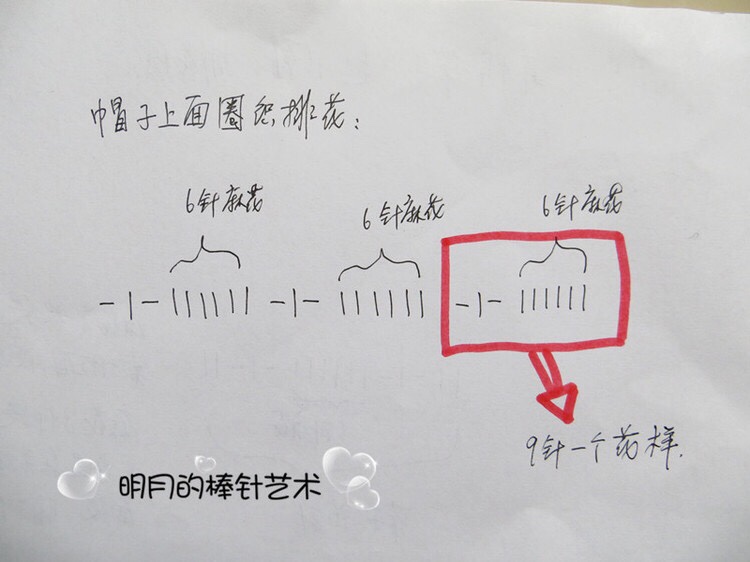 帽子上面圈织排花：
6针麻花 6针麻花 6针麻花
–|–|||||| –|–|||||| –|–||||||
9针一个花样.
明月的棒针艺术